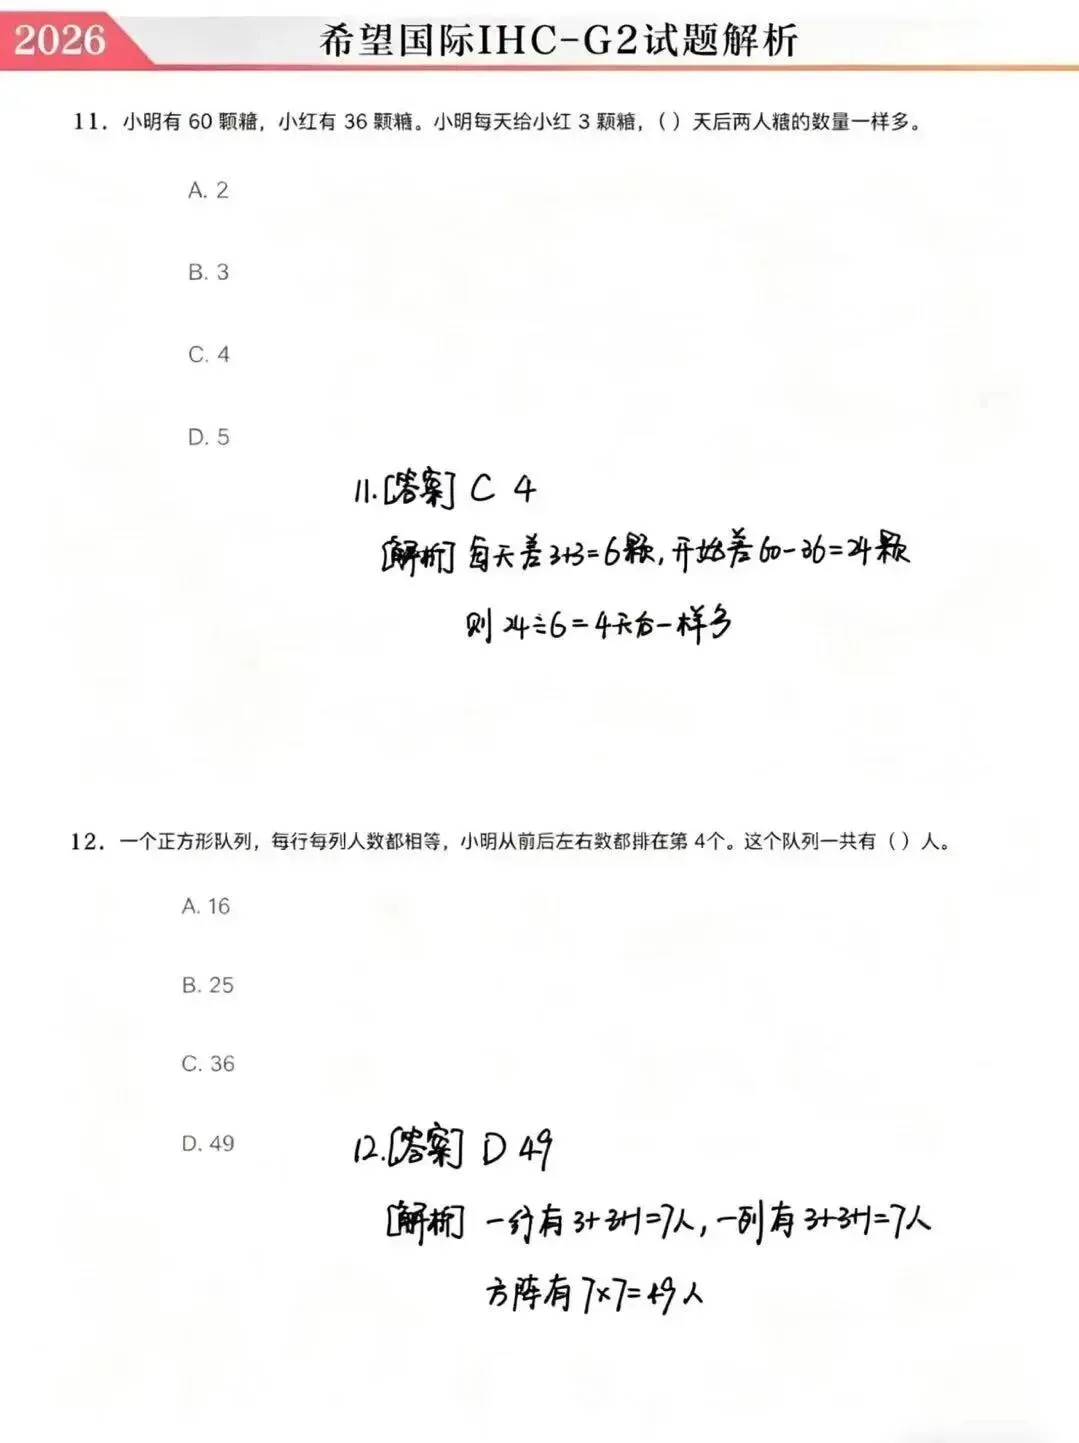 2026
希望国际IHC-G2试题解析
11. 小明有 60 颗糖，小红有 36 颗糖。小明每天给小红 3 颗糖，（ ）天后两人糖的数量一样多。
A. 2
B. 3
C. 4
D. 5
11.[答案] C 4
[解析] 每天差3+3=6颗,开始差60-36=24颗
则 24÷6=4天后一样多
12. 一个正方形队列，每行每列人数都相等，小明从前后左右数都排在第 4个。这个队列一共有（ ）人。
A. 16
B. 25
C. 36
D. 49
12.[答案] D 49
[解析] 一行有3+3+1=7人,一列有3+3+1=7人
方阵有7×7=49人